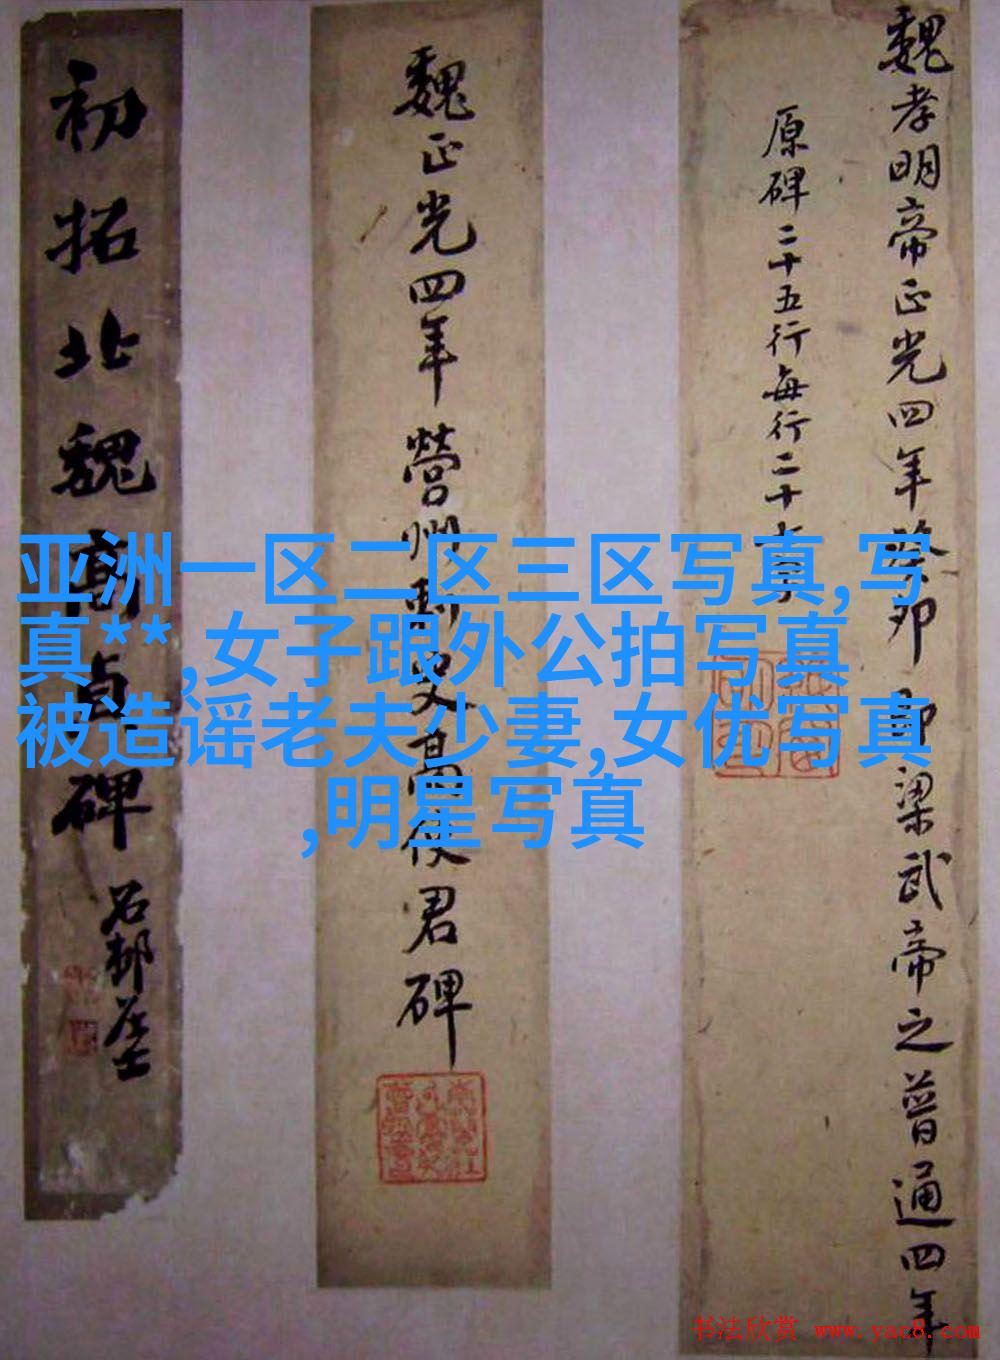 魏孝明帝正光四年癸卯即梁武帝之普通四年
原碑二十五行每行二十
魏正光四年營州刺史高使君碑
初拓北魏高貞碑
石邨居士
亚洲一区二区三区写真,写
真**,女子跟外公拍写真
被造谣老夫少妻,女优写真
,明星写真
书法欣赏 www.yac8.com